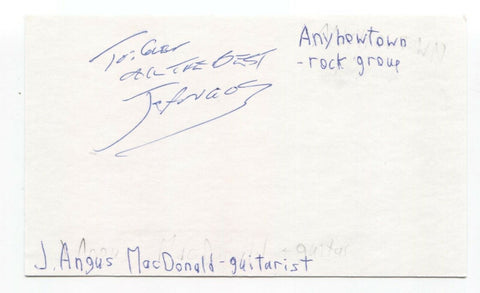 To:
ALL THE BEST
Anyhowtown
-rock group
J. Angus MacDonald-guitarist
-guitar